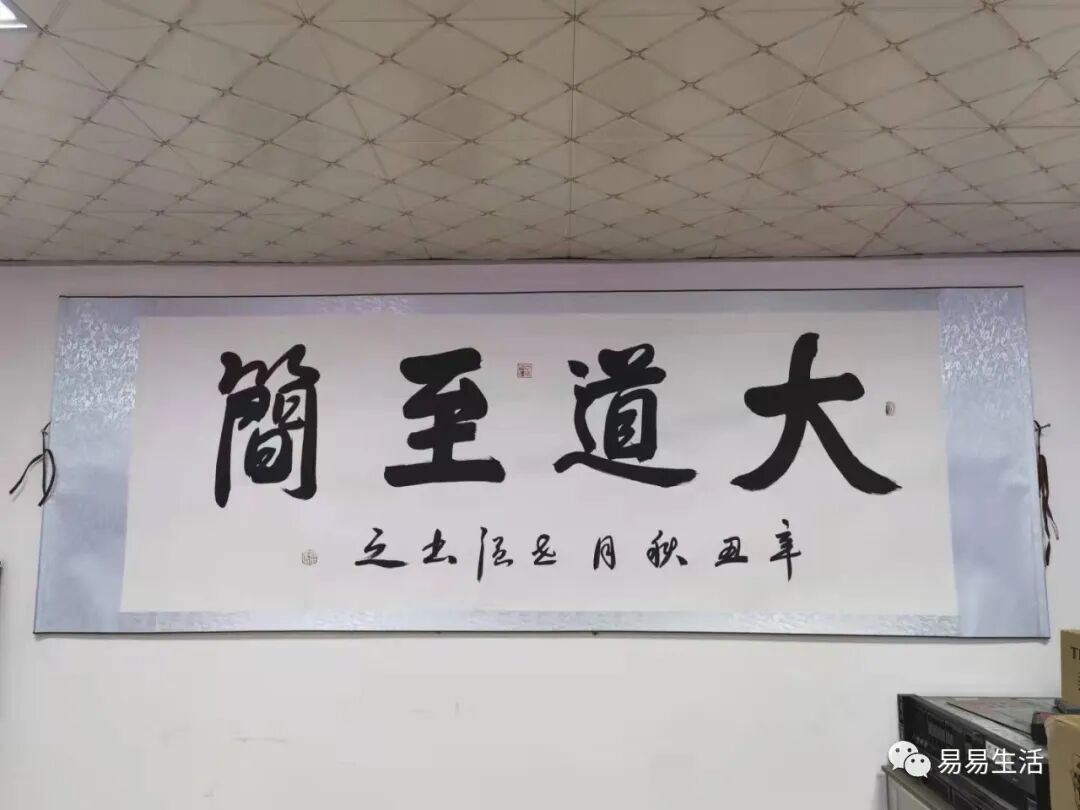 大道至簡
辛丑秋月
书之
易易生活